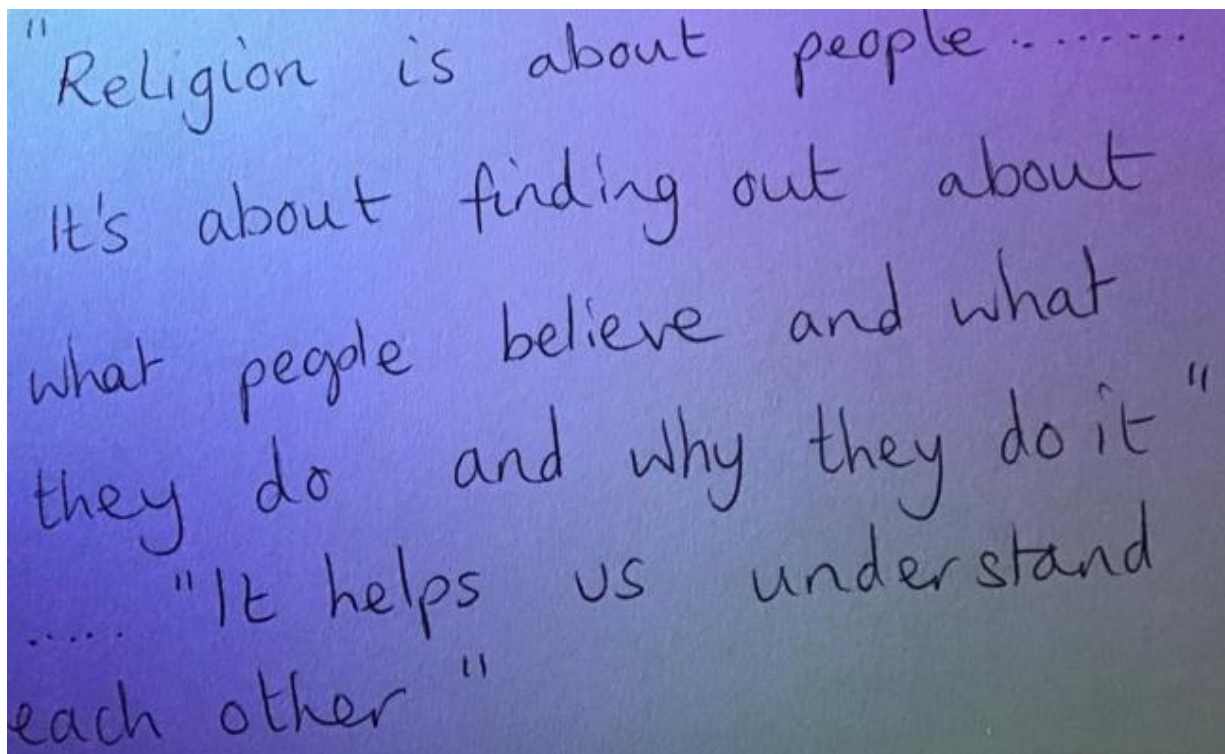 "Religion is about people.........
It's about finding out about
what people believe and what
they do and why they do it"
..... "It helps us understand
each other"